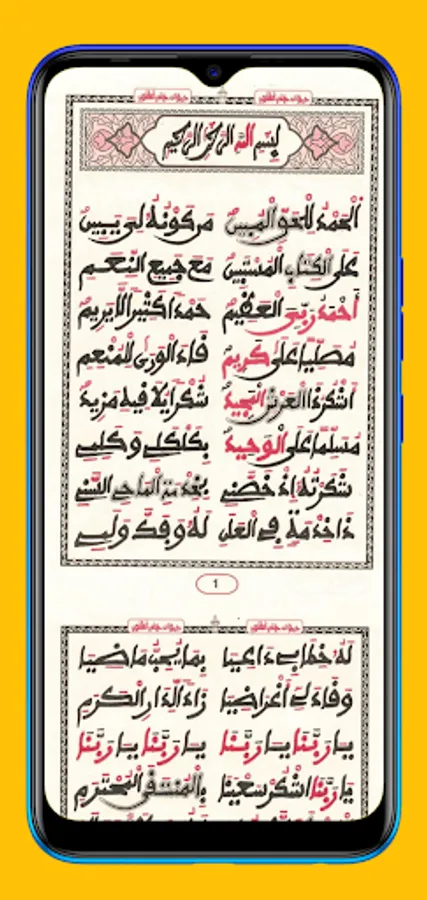 بسم الله الرحمن الرحيم
الحمد للحق المبين من كونه لي يبين
على الكتاب المستبين مع جميع النعم
أحمد ربي العظيم حمدا كثيرا لا يريم
مصليا على كريم قاد الورى للمنعم
اشكر ذا العرش المجيد شكرا يلا فيه مزيد
مسلما على الوحيد بكلكلي وكلمي
شكرته إذ خصني بخدمة الماحي السني
ذا خدمة في العلن له
1
له خطابي داعيا بما يحب ماضيا
وقاد لي أغراضيا الكرم
يا ربنا يا ربنا يا ربنا يا ربنا
يا ربنا اشكر سعينا بالمنتقى المحترم